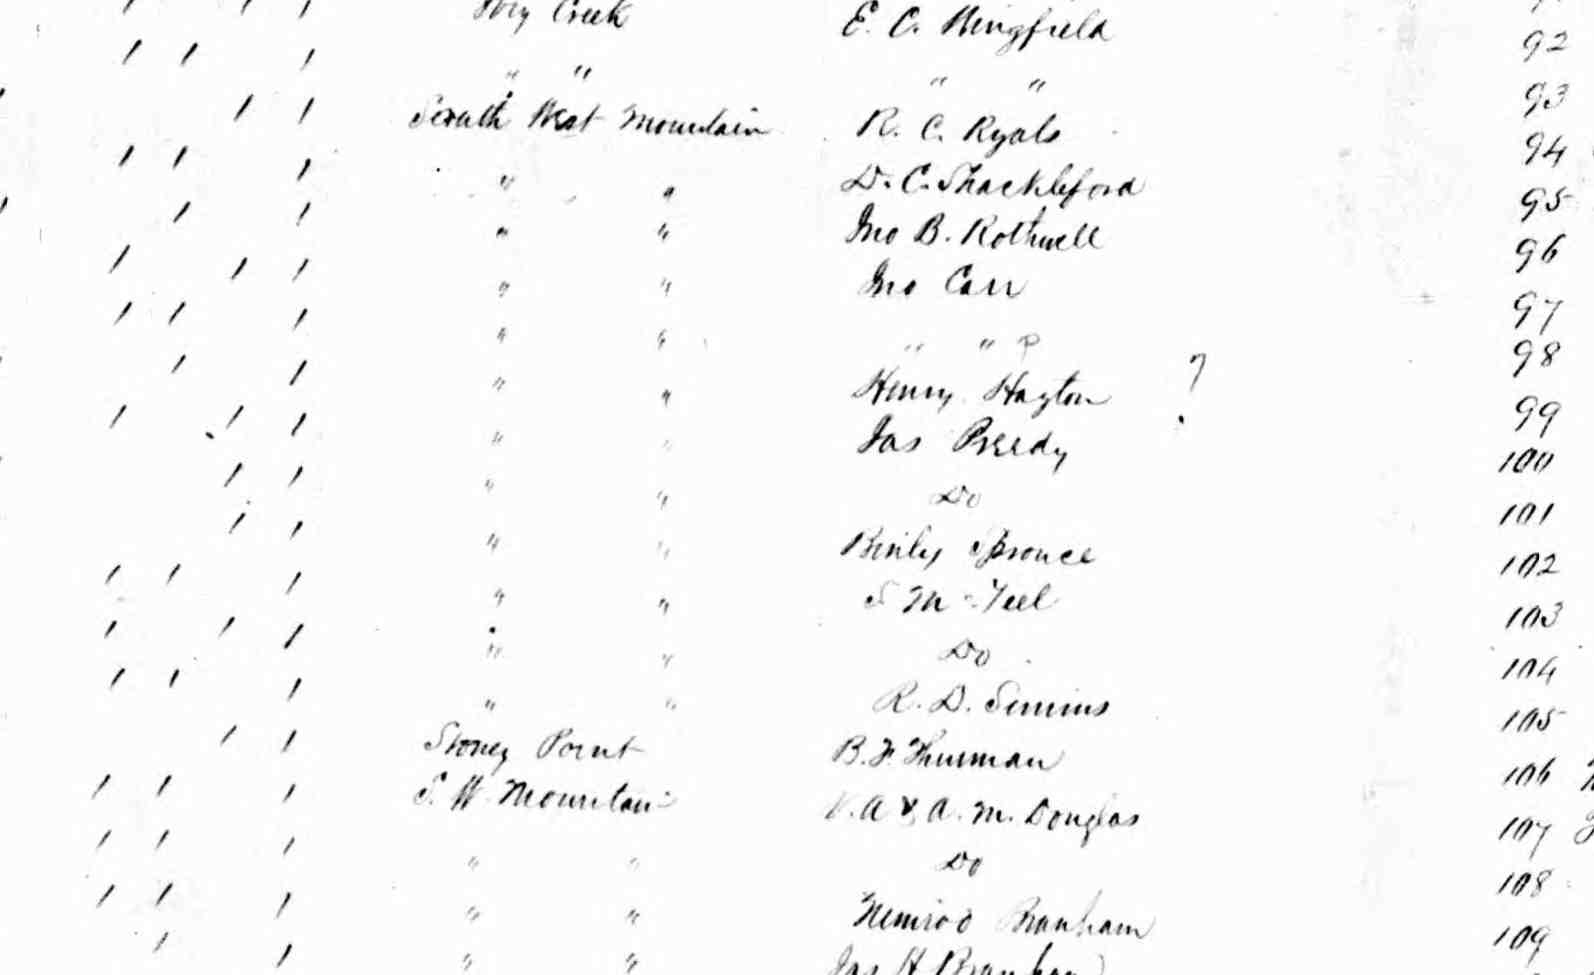 Ivy Creek E. C. Wingfield
/ / / " " " " 92
/ / South West Mountain R. C. Ryals 93
/ / / " " D. C. Shackleford 94
/ / " " Jno B. Rothwell 95
/ / / " " Jno Carr 96
/ / / " " " " 97
/ / " " Henry Hayton ? 98
/ / / " " Jas Preedy 99
/ / " " Do 100
/ / " " Binly Sprouce 101
/ / / " " S M Teel 102
/ / / " " Do 103
/ / / " " R. D. Simms 104
/ / Stoney Point B. F. Thurman 105
/ / / S. W. Mountain V. A & A. M. Douglas 106
/ / / " " Do 107
/ / / " " Nemrod Branham 108
/ / " " Jas H Branham 109